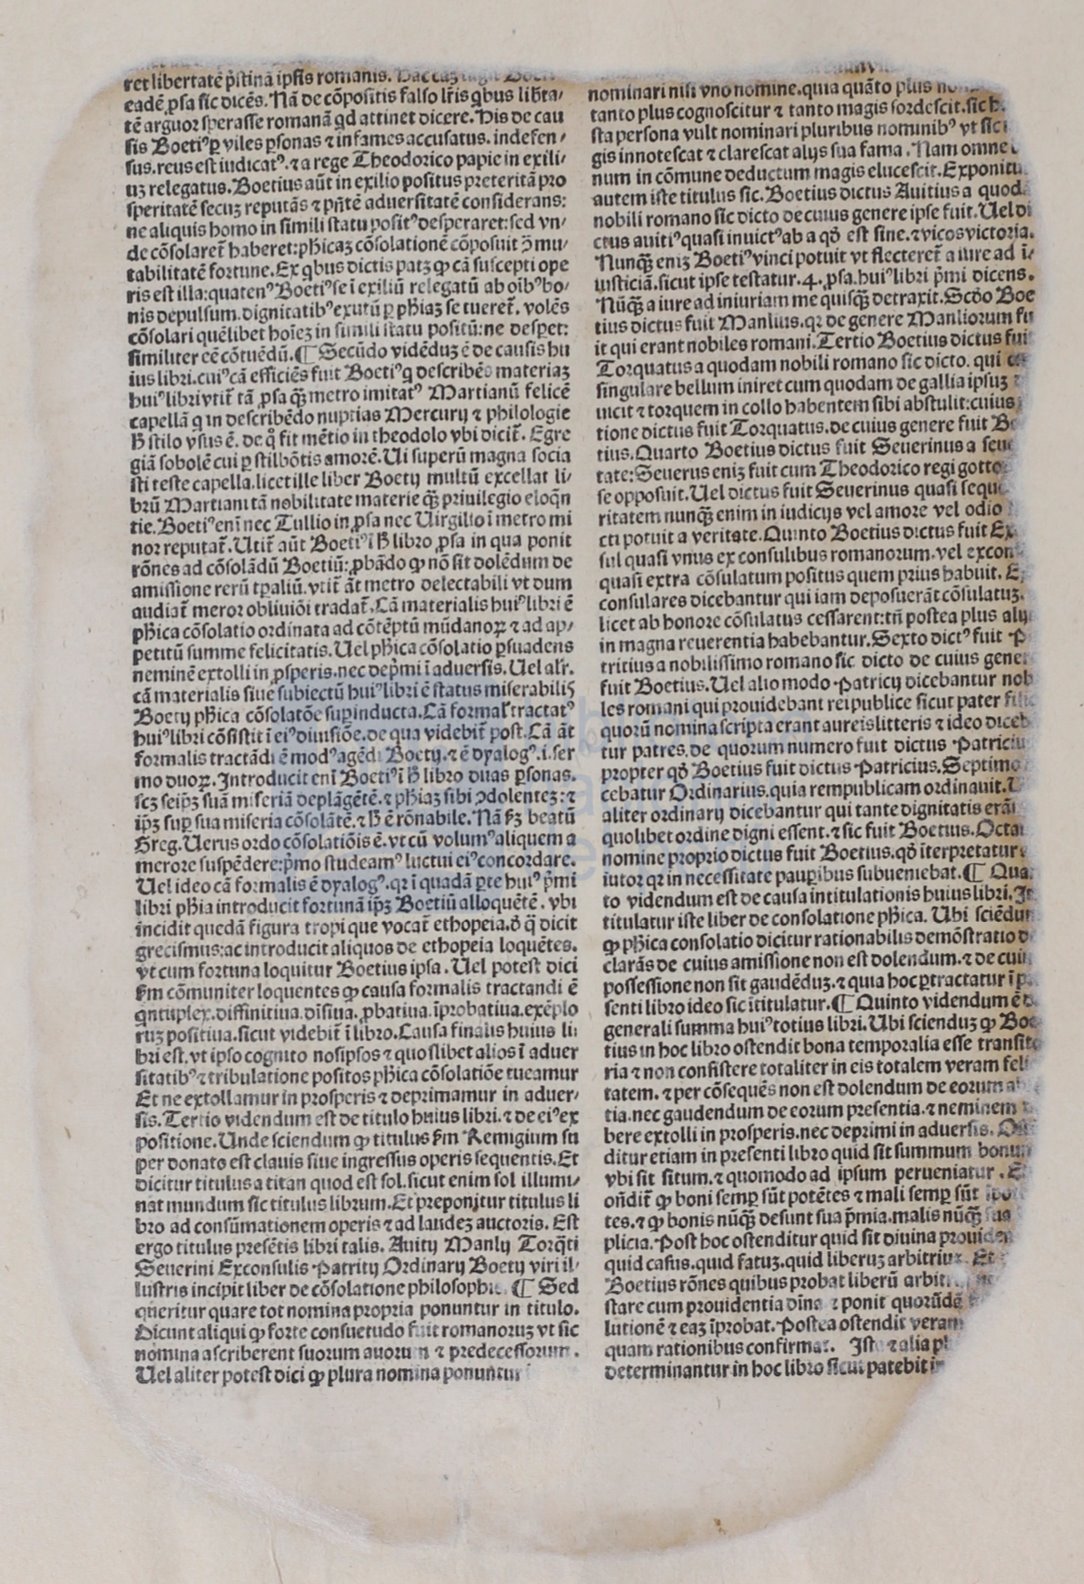 ret libertatē p̄stinā ipsis romanis.
eadē ꝓsa sic dicēs. Nā de cōpositis falso lr̄is qͥbus lib̄ta⸗
tē arguor sperasse romanā qͥd attinet dicere. His de cau
sis Boetiꝰ ꝑ viles ꝑsonas ⁊ infames accusatus. indefen⸗
sus. reus est iudicatꝰ. ⁊ a rege Theodorico papie in exili⸗
uꝫ relegatus. Boetius aūt in exilio positus preteritā pro
speritatē secuꝫ reputās ⁊ pn̄tē aduersitatē considerans:
ne aliquis homo in simili statu positꝰ desperaret: sed vn⸗
de cōsolaret̄ haberet: ph̄icaꝫ cōsolationē cōposuit ꝯ̄ mu⸗
tabilitatē fortune. Ex qͥbus dictis patꝫ ꝙ cā suscepti ope
ris est illa: quatenꝰ Boetiꝰ se ī exiliū relegatū ab oīb̓ bo⸗
nis depulsum. dignitatibꝰ exutū ꝑ ph̄iaꝫ se tueret̄. volēs
cōsolari quēlibet hoīeꝫ in simili statu positū: ne despet:
similiter eē cōtuēdū. ¶ Secūdo vidēduꝫ ē de causis hu
ius libri. cuiꝰ cā efficiēs fuit Boetiꝰ qͥ describēs materiaꝫ
huiꝰ libri vtit̄ tā ꝓsa qꝫ̄ metro imitatꝰ Martianū felicē
capellā qͥ in describēdo nuptias Mercurij ⁊ philologie
h̄ stilo vsus ē. de qͦ fit mētio in theodolo vbi dicit̄. Egre
giā sobolē cui ꝑ stilbōtis amorē. Ui superū magna socia
sti teste capella. licet ille liber Boetij multū excellat li⸗
brū Martiani tā nobilitate materie qꝫ̄ priuilegio eloqn̄
tie. Boetiꝰ enī nec Tullio in ꝓsa nec Uirgilio ī metro mi
nor reputat̄. Utit̄ aūt Boetiꝰ ī h̄ libro ꝓsa in qua ponit
rōnes ad cōsolādū Boetiū: ꝓbādo ꝙ nō sit dolēdum de
amissione rerū tp̄aliū. vtit̄ āt metro delectabili vt dum
audiat̄ meror obliuiōi tradat̄. Cā materialis huiꝰ libri ē
ph̄ica cōsolatio ordinata ad cōtēptū mūdanoꝝ ⁊ ad ap⸗
petitū summe felicitatis. Uel ph̄ica cōsolatio ꝑsuadens
neminē extolli in ꝓsperis. nec dep̄mi ī aduersis. Uel alr̄.
cā materialis siue subiectū huiꝰ libri ē status miserabilis
Boetij ph̄ica cōsolatōe sup̄inducta. Cā formal̄ tractatꝰ
huiꝰ libri cōsistit ī eiꝰ diuisiōe. de qua videbit̄ post. Cā āt
formalis tractādi ē modꝰ agēdi Boetij. ⁊ ē dyalogꝰ. i. ser
mo duoꝝ. Introducit enī Boetiꝰ ī h̄ libro duas ꝑsonas.
scꝫ seip̄ꝫ suā miseriā deplāgētē. ⁊ ph̄iaꝫ sibi ꝯdolenteꝫ: ⁊
ip̄ꝫ suꝑ sua miseria cōsolātē. ⁊ h̄ ē rōnabile. Nā ẜꝫ beatū
Greg. Uerus ordo cōsolatiōis ē. vt cū volumꝰ aliquem a
merore suspēdere: p̄mo studeamꝰ luctui eiꝰ concordare.
Uel ideo cā formalis ē dyalogꝰ. qꝛ ī quadā ꝑte huiꝰ p̄mi
libri ph̄ia introducit fortunā ip̄ꝫ Boetiū alloquētē. vbi
incidit quedā figura tropi que vocat̄ ethopeia. d̓ q̄ dicit
grecismus: ac introducit aliquos de ethopeia loquētes.
vt cum fortuna loquitur Boetius ipsa. Uel potest dici
ẜm cōmuniter loquentes ꝙ causa formalis tractandi ē
qͥntuplex. diffinitiua. diuisiua. ꝓbatiua. īprobatiua. exēplo
ruꝫ positiua. sicut videbit̄ ī libro. Causa finalis huius li⸗
bri est. vt ipso cognito nosipsos ⁊ quoslibet alios ī aduer
sitatibꝰ ⁊ tribulatione positos ph̄ica cōsolatiōe tueamur
Et ne extollamur in prosperis ⁊ deprimamur in aduer⸗
sis. Tertio videndum est de titulo huius libri. ⁊ de eiꝰ ex
positione. Unde sciendum ꝙ titulus ẜm Remigium su
per donato est clauis siue ingressus operis sequentis. Et
dicitur titulus a titan quod est sol. sicut enim sol illumi⸗
nat mundum sic titulus librum. Et preponitur titulus li
bro ad consūmationem operis ⁊ ad laudeꝫ auctoris. Est
ergo titulus presētis libri talis. Auitij Manlij Torqͣti
Seuerini Exconsulis Patritij Ordinarij Boetij viri il⸗
lustris incipit liber de cōsolatione philosophie. ¶ Sed
queritur quare tot nomina propria ponuntur in titulo.
Dicunt aliqui ꝙ forte consuetudo fuit romanoruꝫ vt sic
nomina ascriberent suorum auorum ⁊ predecessorum.
Uel aliter potest dici ꝙ plura nomina ponuntur
nominari nisi vno nomine. quia quāto plus
tanto plus cognoscitur ⁊ tanto magis sordescit. sic
sta persona vult nominari pluribus nominibꝰ vt sic
gis innotescat ⁊ clarescat alijs sua fama. Nam omne
num in cōmune deductum magis elucescit. Exponitur
autem iste titulus sic. Boetius dictus Auitius a quodā
nobili romano sic dicto de cuius genere ipse fuit. Uel di
ctus auitiꝰ quasi inuictꝰ ab a qd̓ est sine. ⁊ vicos victoria.
Nunqꝫ̄ eniꝫ Boetiꝰ vinci potuit vt flecteret̄ a iure ad ī⸗
iusticiā. sicut ipse testatur. 4. ꝓsa. huiꝰ libri p̄mi dicens.
Nūqꝫ̄ a iure ad iniuriam me quisqꝫ̄ detraxit. Scd̓o Boe
tius dictus fuit Manlius. qꝛ de genere Manliorum fu
it qui erant nobiles romani. Tertio Boetius dictus fuit
Torquatus a quodam nobili romano sic dicto. qui
singulare bellum iniret cum quodam de gallia ipsuꝫ
uicit ⁊ torquem in collo habentem sibi abstulit: cuius
tione dictus fuit Torquatus. de cuius genere fuit Boe
tius. Quarto Boetius dictus fuit Seuerinus a seue
tate: Seuerus eniꝫ fuit cum Theodorico regi gotto
se opposuit. Uel dictus fuit Seuerinus quasi seque
ritatem nunqꝫ̄ enim in iudicijs vel amore vel odio
cti potuit a veritate. Quinto Boetius dictus fuit Ex
sul quasi vnus ex consulibus romanorum. vel excon
quasi extra cōsulatum positus quem prius habuit.
consulares dicebantur qui iam deposuerāt cōsulatuꝫ.
licet ab honore cōsulatus cessarent: tn̄ postea plus alijs
in magna reuerentia habebantur. Sexto dictꝰ fuit P
tritius a nobilissimo romano sic dicto de cuius gene
fuit Boetius. Uel alio modo Patricij dicebantur nob
les romani qui prouidebant reipublice sicut pater
quorū nomina scripta erant aureis litteris ⁊ ideo diceb
tur patres. de quorum numero fuit dictus Patriciu
propter qd̓ Boetius fuit dictus Patricius. Septimo
cebatur Ordinarius. quia rempublicam ordinauit.
aliter ordinarij dicebantur qui tante dignitatis erāt
quolibet ordine digni essent. ⁊ sic fuit Boetius. Octa
nomine proprio dictus fuit Boetius. qd̓ īterpretatur
iutor qꝛ in necessitate pauꝑibus subueniebat. ¶ Qua
to videndum est de causa intitulationis huius libri. In
titulatur iste liber de consolatione ph̄ica. Ubi sciēdum
ꝙ ph̄ica consolatio dicitur rationabilis demōstratio de
clarās de cuius amissione non est dolendum. ⁊ de cuiu
possessione non sit gaudēduꝫ. ⁊ quia hoc ꝑtractatur ī p
senti libro ideo sic ītitulatur. ¶ Quinto videndum ē d
generali summa huiꝰ totius libri. Ubi sciendum ꝙ Boe
tius in hoc libro ostendit bona temporalia esse transito
ria ⁊ non consistere totaliter in eis totalem veram feli
tatem. ⁊ per cōsequēs non est dolendum de eorum
tia. nec gaudendum de eorum presentia. ⁊ neminem
bere extolli in prosperis. nec deprimi in aduersis.
ditur etiam in presenti libro quid sit summum bonum
vbi sit situm. ⁊ quomodo ad ipsum perueniatur.
on̄dit̄ ꝙ boni semꝑ sūt potētes ⁊ mali semꝑ sūt
tes. ⁊ ꝙ bonis nūqꝫ̄ desunt sua p̄mia. malis nūqꝫ̄
plicia. Post hoc ostenditur quid sit diuina prouiden
quid casus. quid fatuꝫ. quid liberuꝫ arbitriuꝫ. Et
Boetius rōnes quibus probat liberū arbitri
stare cum prouidentia dīna ⁊ ponit quorūdē
lutionē ⁊ eaꝫ īprobat. Postea ostendit veram
quam rationibus confirmat. Ista ⁊ alia pl
determinantur in hoc libro sicut patebit in